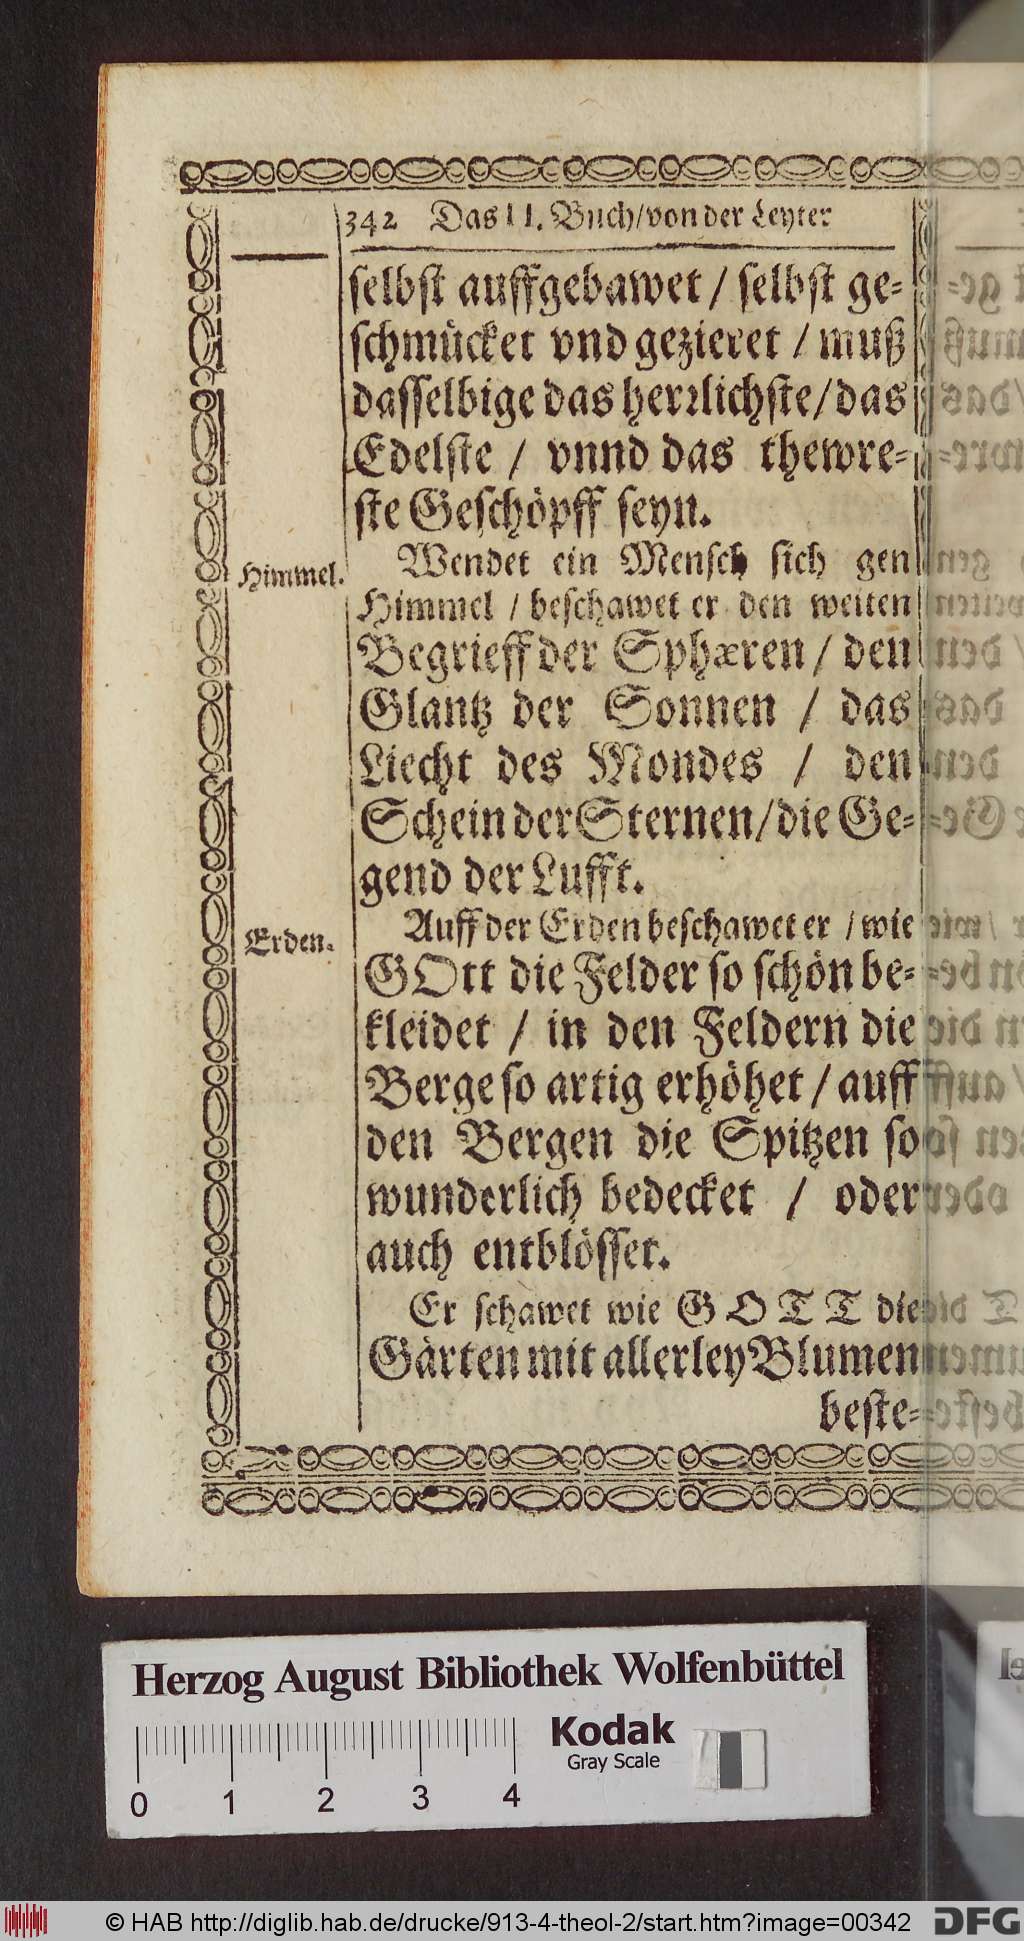 342 Das II. Buch/von der Leyter
selbst auffgebawet / selbst ge-
schmücket vnd gezieret / muß
dasselbige das herrlichste/das
Edelste / vnnd das thewre-
ste Geschöpff seyn.
Wendet ein Mensch sich gen
Himmel.
Himmel / beschawet er den weiten
Begrieff der Sphæren / den
Glantz der Sonnen / das
Liecht des Mondes / den
Schein der Sternen/die Ge-
gend der Lufft.
Auff der Erden beschawet er / wie
Erden.
GOtt die Felder so schön be-
kleidet / in den Feldern die
Berge so artig erhöhet / auff
den Bergen die Spitzen so
wunderlich bedecket / oder
auch entblösset.
Er schawet wie GOTT die
Gärten mit allerley Blumen
beste-
Herzog August Bibliothek Wolfenbüttel
Kodak
Gray Scale
0 1 2 3 4
© HAB http://diglib.hab.de/drucke/913-4-theol-2/start.htm?image=00342
DFG